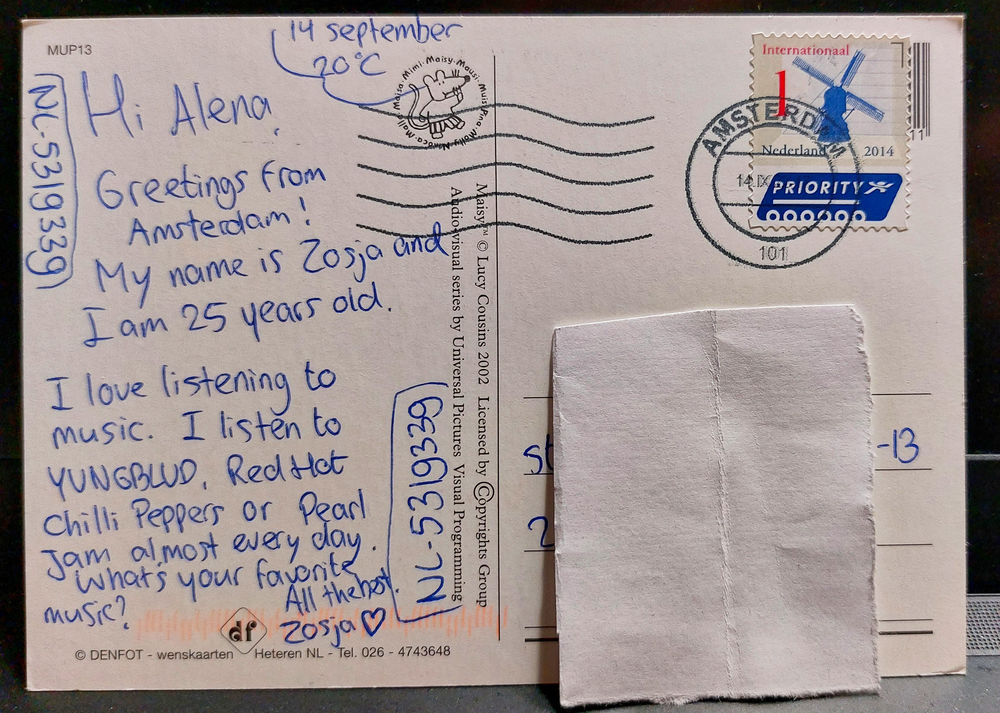 MUP13
14 september
20°C
NL-5319339
Hi Alena,
Greetings from
Amsterdam!
My name is Zosja and
I am 25 years old.
I love listening to
music. I listen to
YUNGBLUD, Red Hot
Chilli Peppers or Pearl
Jam almost every day.
What's your favorite
music?
All the best.
Zosja ♡
NL-5319339
df
© DENFOT - wenskaarten Heteren NL - Tel. 026 - 4743648
Maisy™ © Lucy Cousins 2002 Licensed by Copyrights Group
Audio-visual series by Universal Pictures Visual Programming
Internationaal
1
Nederland 2014
PRIORITY
AMSTERDAM
101
11
st
-13
2